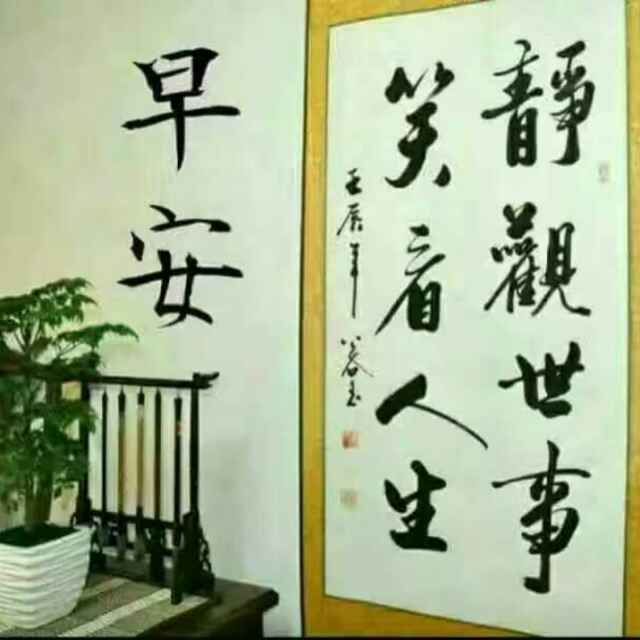 早安
靜觀世事
笑看人生
壬辰年